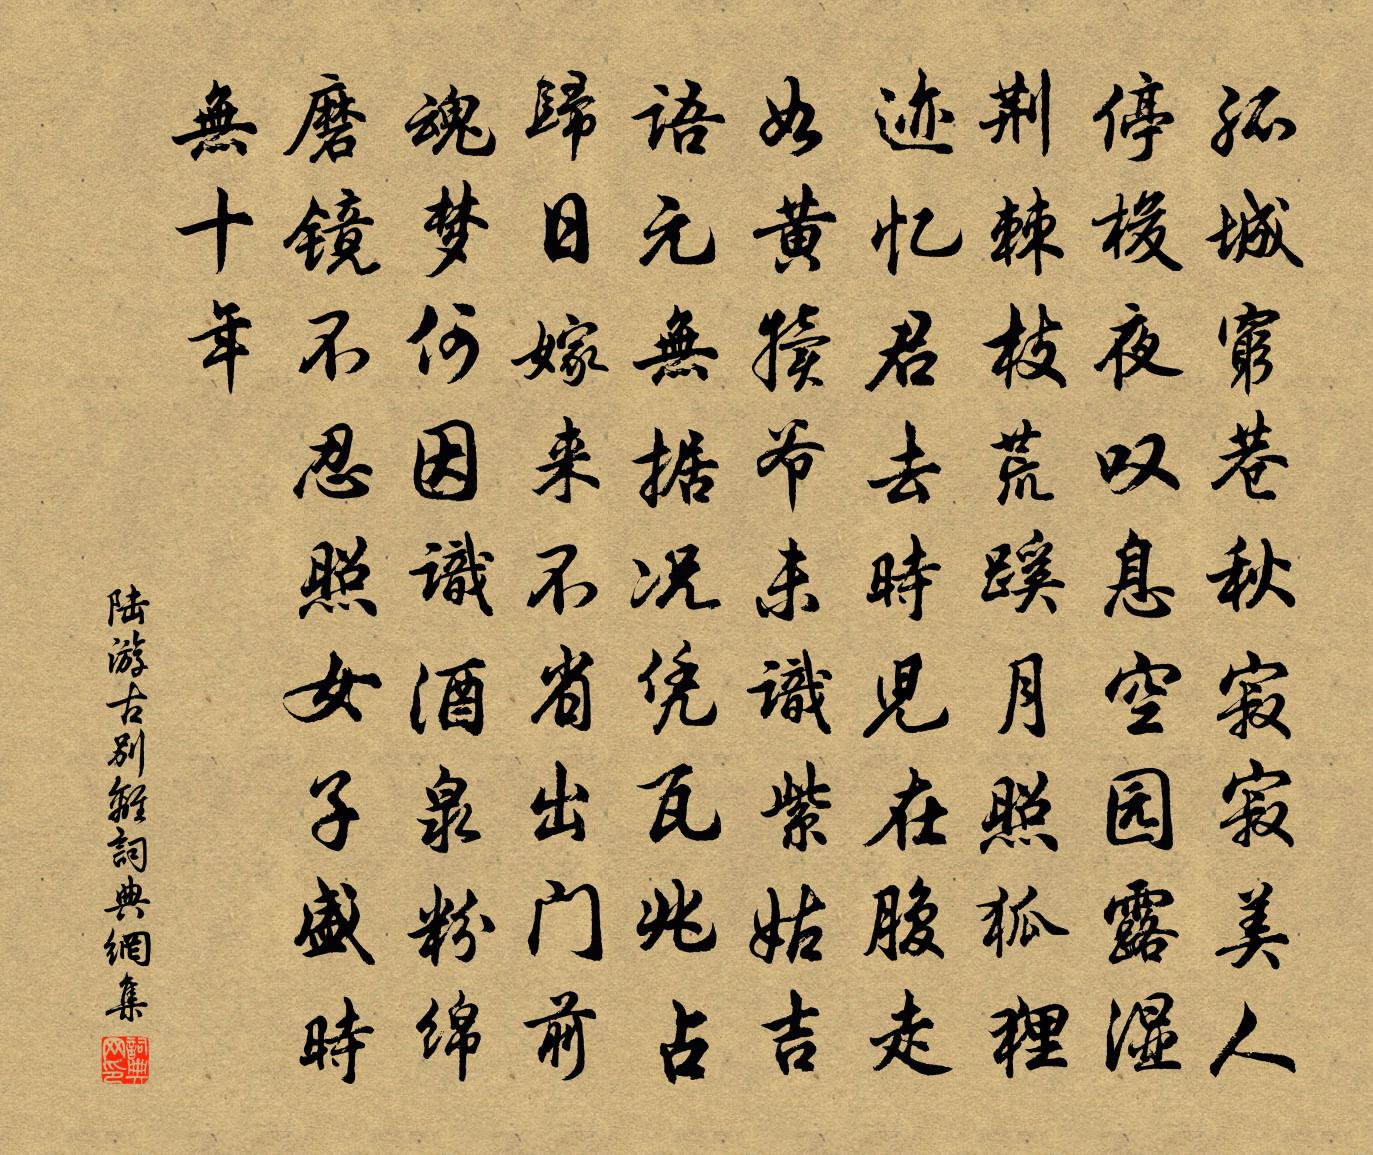 孤城窮巷秋寂寂美人
停梭夜叹息空园露湿
荆棘枝荒蹊月照狐狸
迹忆君去時児在腹走
如黄犊爷未識紫姑吉
語元無据况凭瓦兆占
歸日嫁来不省出门前
魂梦何因識酒泉粉绵
磨镜不忍照女子盛時
無十年
陆游古别離詞典網集
詞典网印